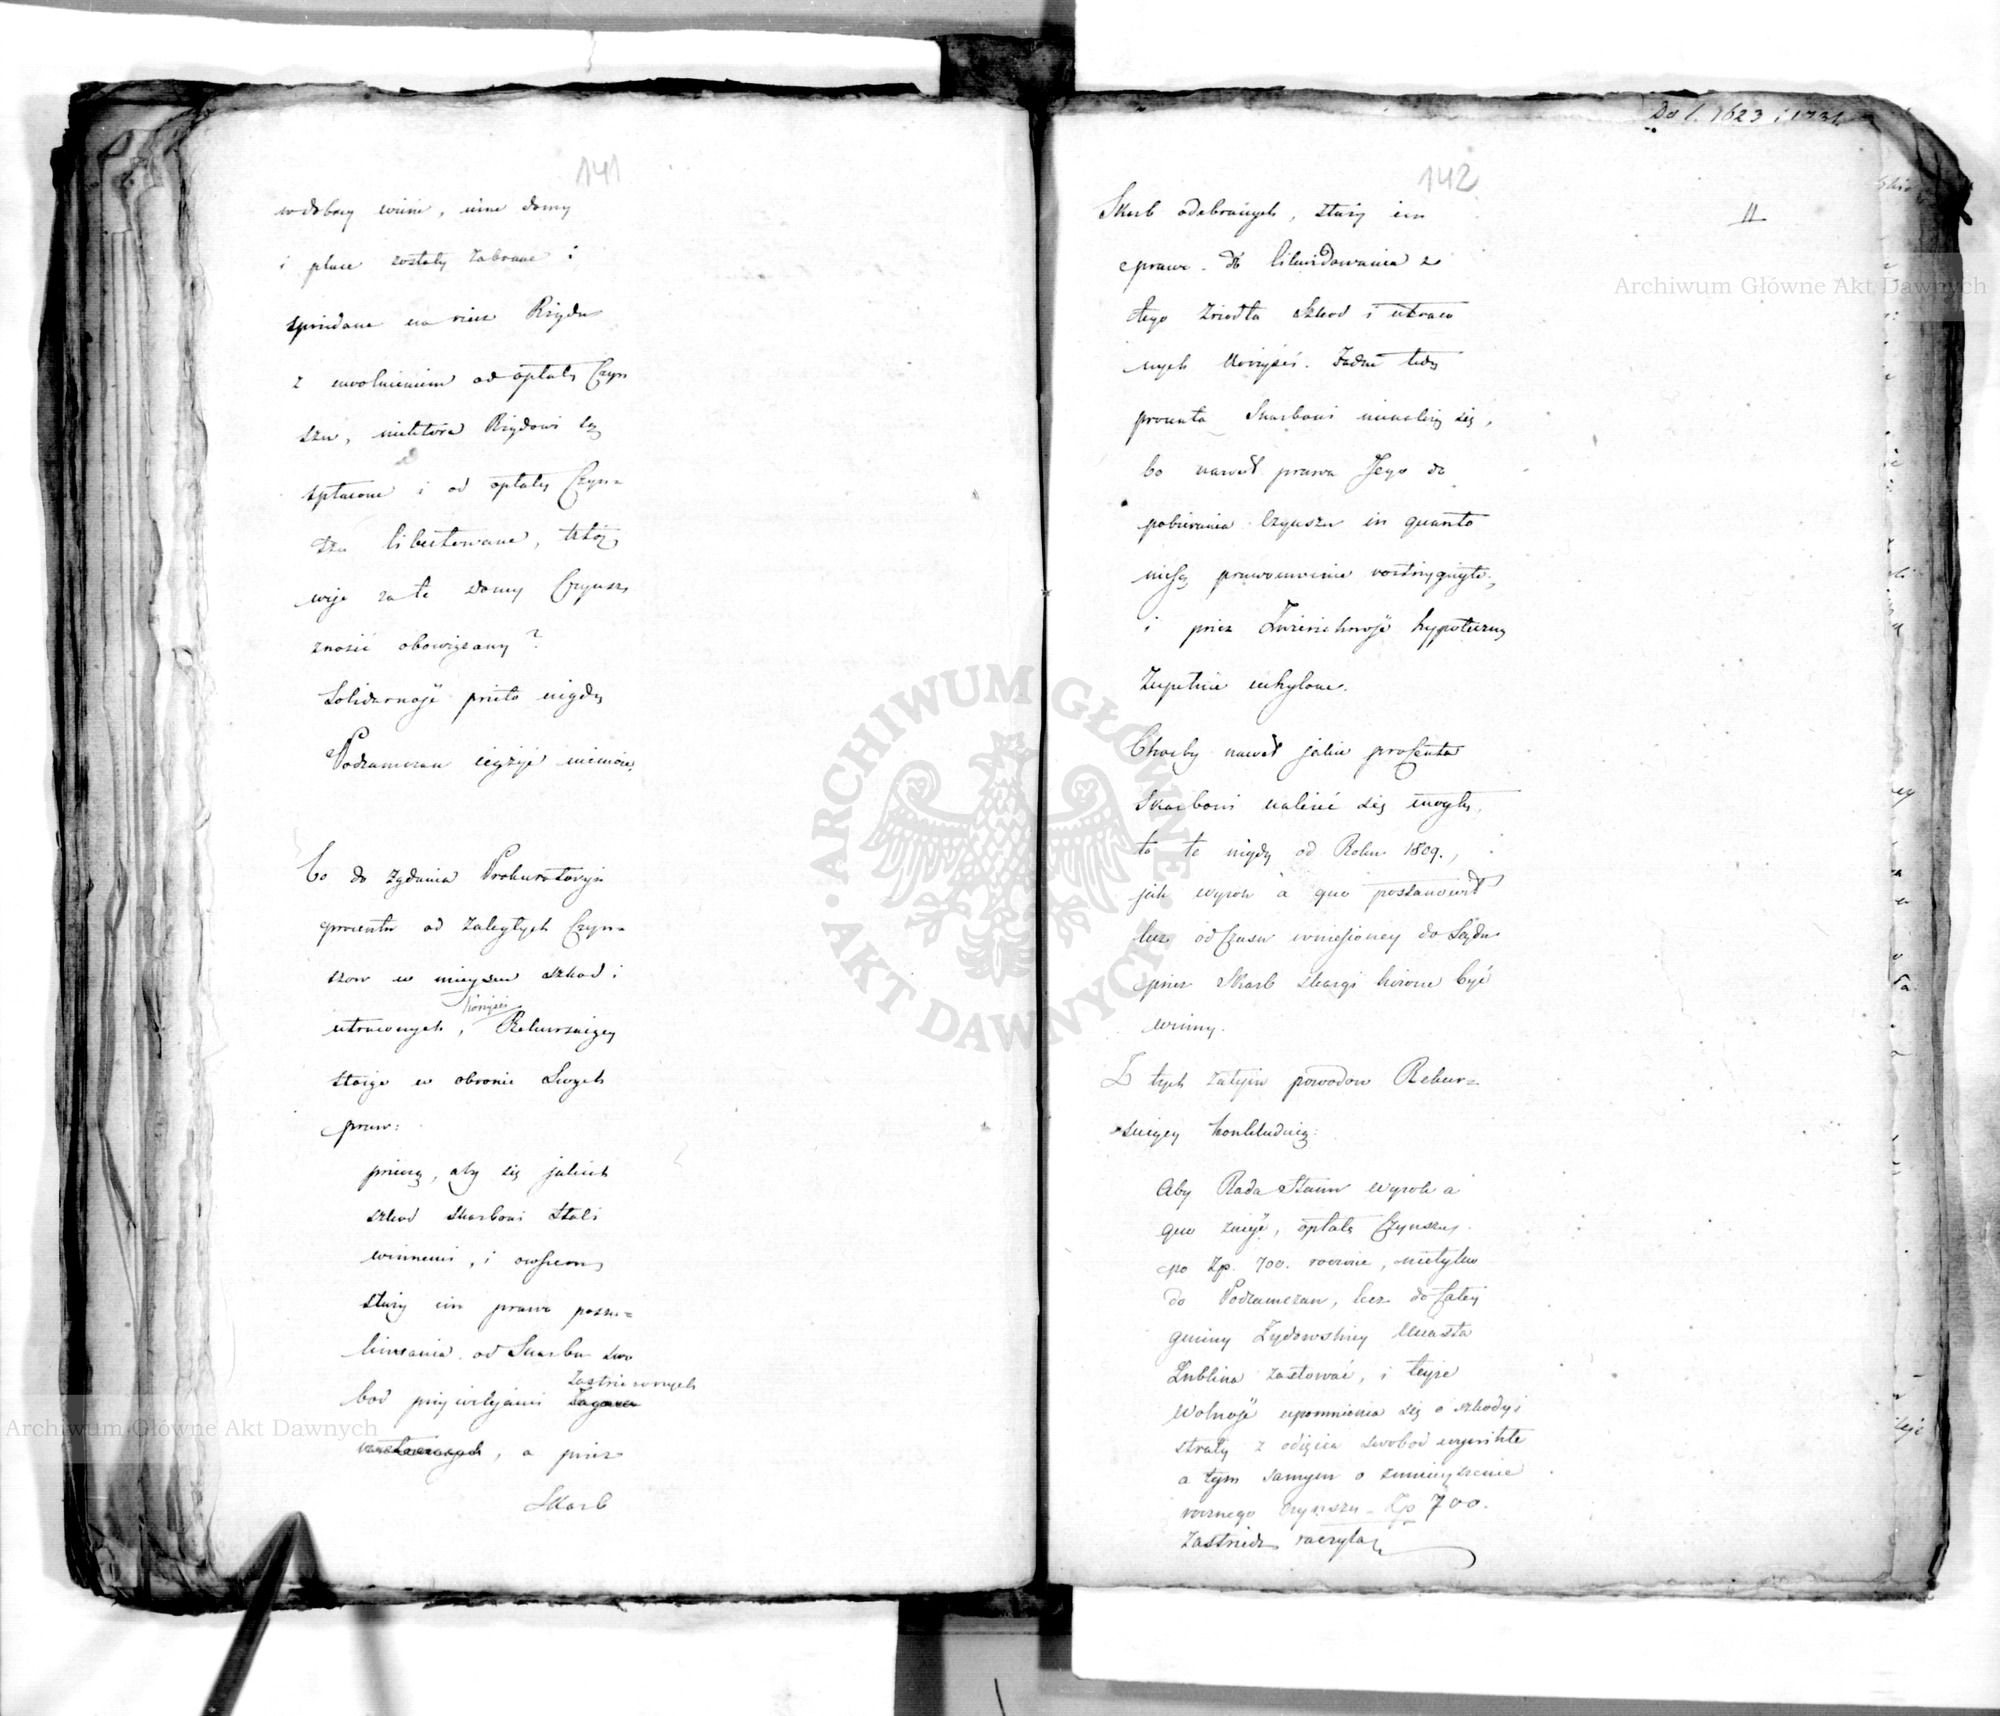 141
w dobrey wierze, inne domy
i place zostały zabrane i
sprzedane na rzecz Rządu
z uwolnieniem od opłaty Czyn
szu, niektóre Rządowi są
spłacone i od opłaty Czyn=
szu libertowane, któż
więc za te domy Czynsz
znosić obowiązany?
Solidarność przeto nigdy
Podzamczan ciążyć niemoże,
Co do żądania Prokuratoryi
procentu od zaległych Czyn=
szow w mieysce szkod i
korzyści
utraconych, Rekursuiący
stoiąc w obronie swych
praw:
przeczą, aby się jakich
szkod Skarbowi stali
winnemi, i owszem
służy im prawo poszu=
kiwania od Skarbu swo
zastrzeżonych
bod przywilejami
, a przez
Skarb
Do l. 1623 i 1731.
142
11
Skarb odebranych, służy im
prawo do likwidowania z
tego zrzodła szkod i utraco
nych korzyści. Żadne tedy
procenta Skarbowi nienależą się,
bo nawet prawa Jego do
pobierania Czynszu in quanto
niesą prawomocnie rostrzygnięte,
i przez Zwierzchność hypoteczną
zupełnie uchylone.
Choćby nawet jakie procenta
Skarbowi należeć się mogły,
to te nigdy od Roku 1809.,
jak wyrok a quo postanowił
lecz od Czasu wniesioney do Sądu
przez Skarb skargi liczone być
winny.
Z tych zatym powodow Rekur=
suiący konkluduią:
Aby Rada Stanu wyrok a
quo znieść, opłatę Czynszu
po Zp. 700. rocznie, nietylko
do Podzamczan, lecz do całey
gminy Żydowskiey Miasta
Lublina zastować, i teyże
wolność upomnienia się o szkody i
straty z odięcia swobod wynikłe
a tym samym o zmnieyszenie
rocznego Czynszu Zp 700.
zastrzedz raczyła
Archiwum Główne Akt Dawnych
Archiwum Główne Akt Dawnych
ARCHIWUM GŁÓWNE AKT DAWNYCH